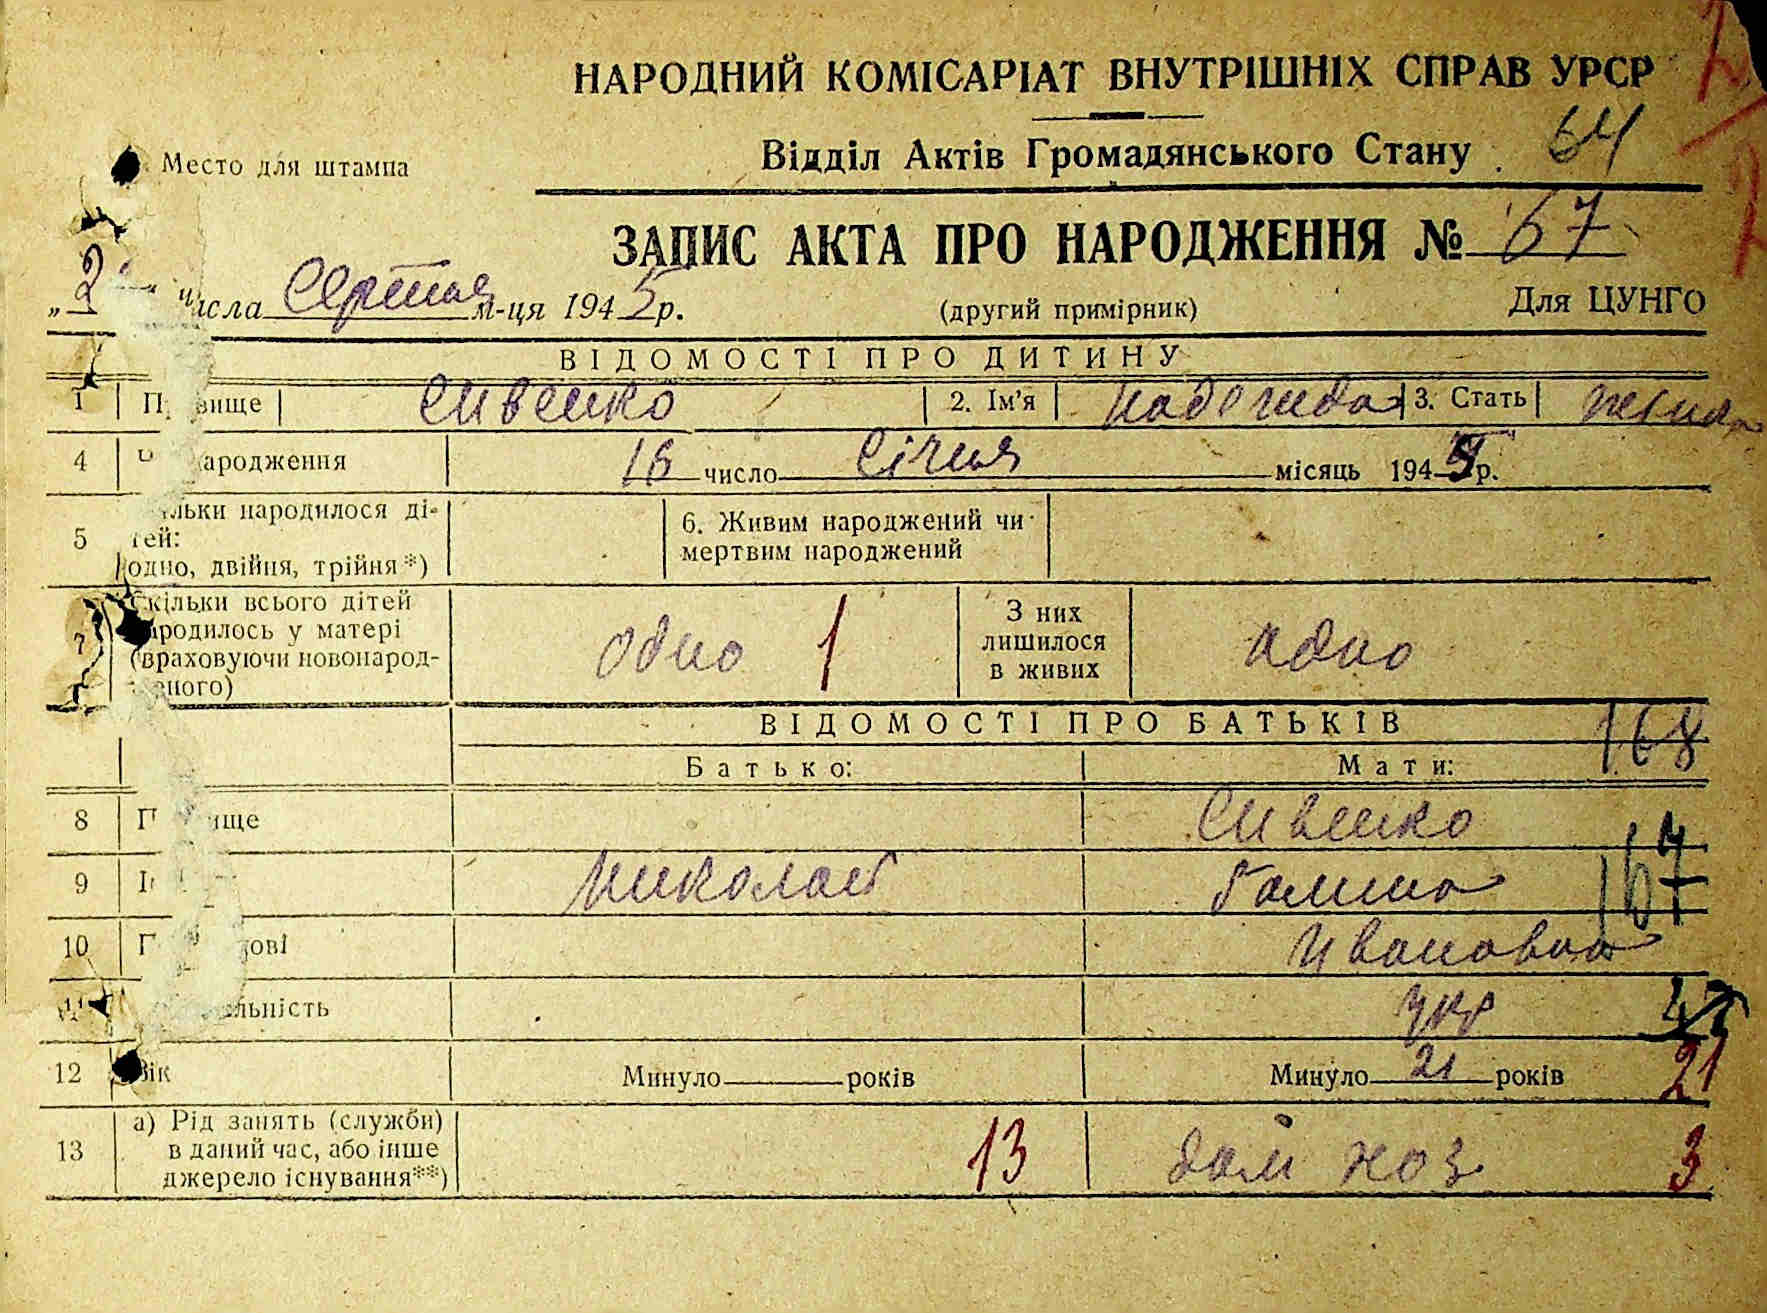 НАРОДНИЙ КОМІСАРІАТ ВНУТРІШНІХ СПРАВ УРСР
Место для штампа
Відділ Актів Громадянського Стану 64
ЗАПИС АКТА ПРО НАРОДЖЕННЯ № 67
„2 числа Серпня м-ця 1945р.
(другий примірник)
Для ЦУНГО
ВІДОМОСТІ ПРО ДИТИНУ
1 вище Сивенко 2. Ім'я 3. Стать
4 ародження 16 число Січня місяць 1945р.
5 льки народилося ді-
тей:
одно, двійня, трійня*)
6. Живим народжений чи
мертвим народжений
7 Скільки всього дітей
народилось у матері
(враховуючи новонарод-
ного)
одно 1
З них
лишилося
в живих
одно
ВІДОМОСТІ ПРО БАТЬКІВ 168
Батько: Мати:
8 ще Сивенко
9 Николай Галина 167
10 ові Ивановна
11 льність укр
12 Вік Минуло років Минуло 21 років 21
13 а) Рід занять (служби)
в даний час, або інше
джерело існування**)
13 дом хоз 3